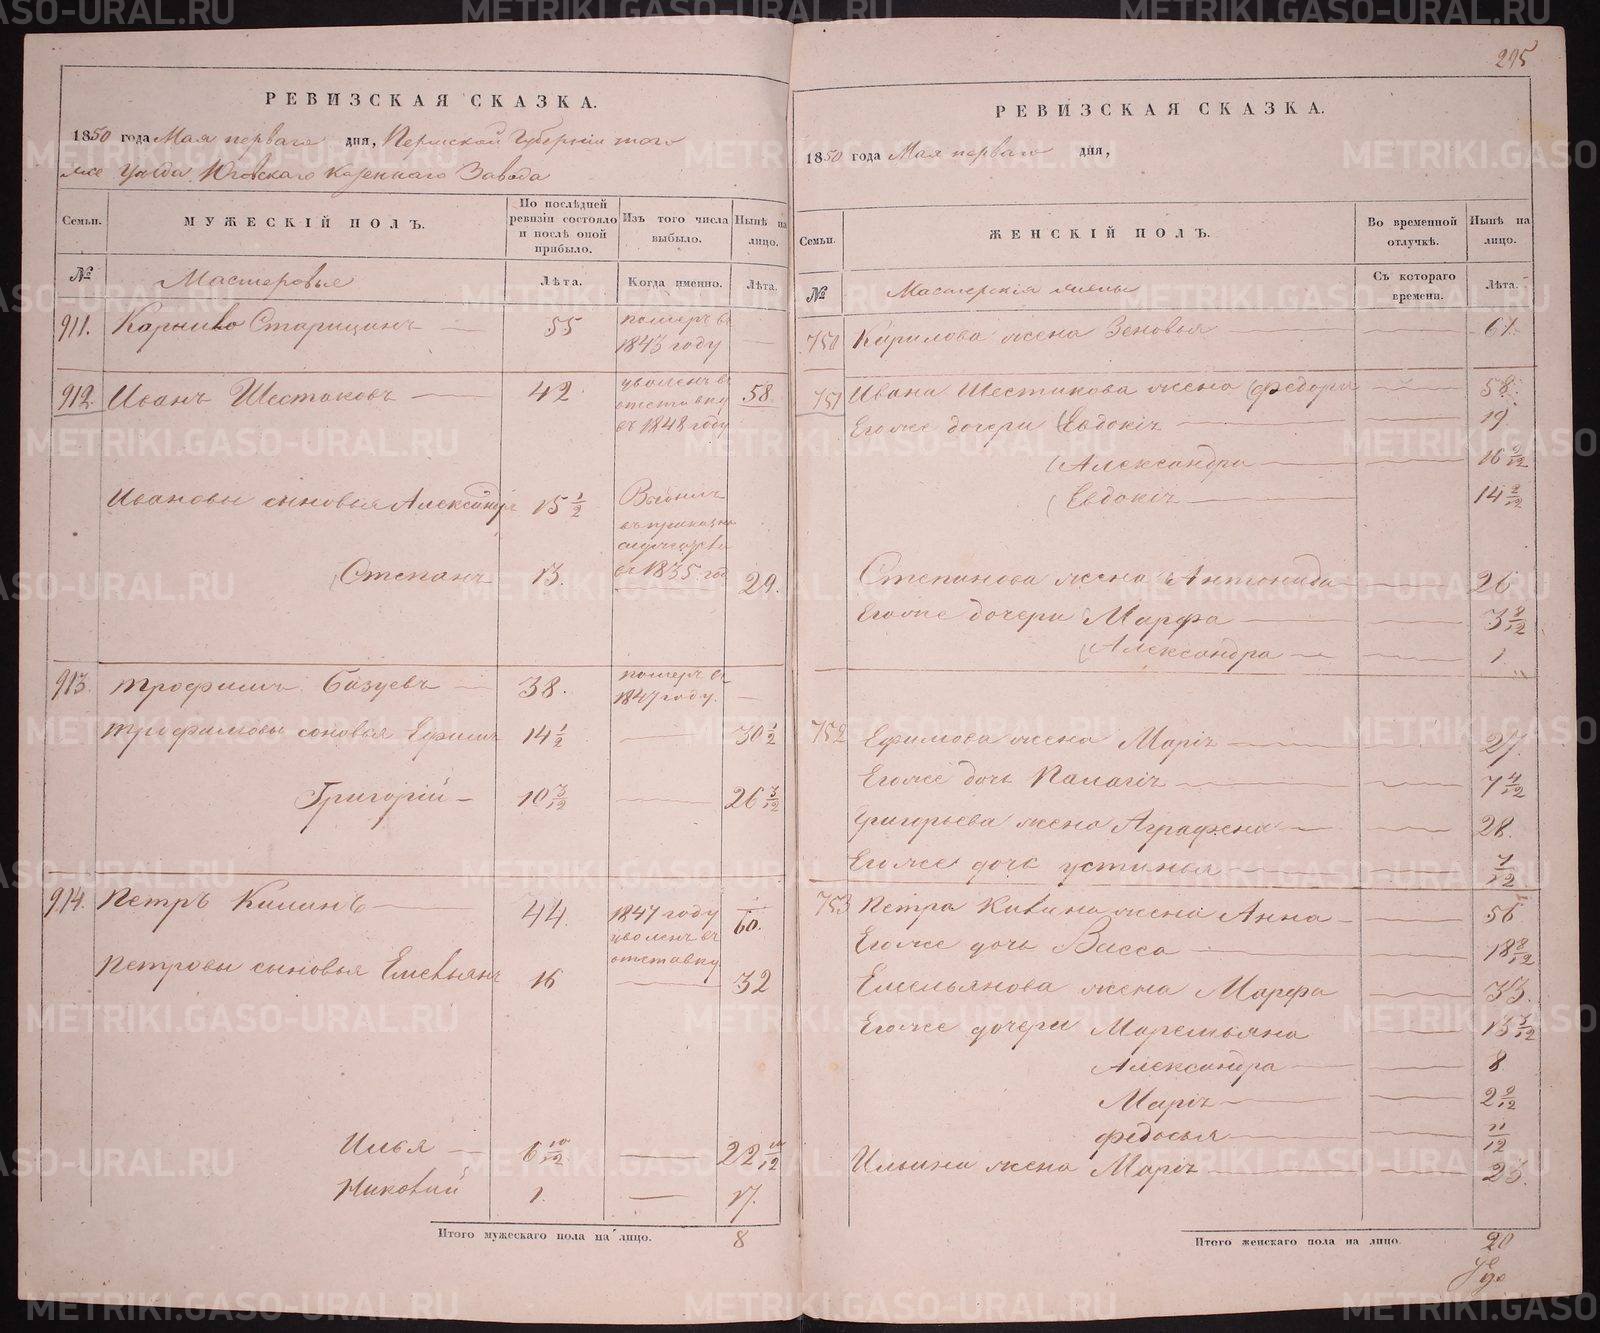 295
РЕВИЗСКАЯ СКАЗКА.
1850 года Мая перваго дня, Пермской Губерніи того
же Уѣзда Юговскаго Казеннаго Завода
Семьи. МУЖЕСКІЙ ПОЛЪ. По послѣдней ревизіи состояло и послѣ оной прибыло. Изъ того числа выбыло. Нынѣ на лицо.
№ Мастеровые Лѣта. Когда именно. Лѣта.
911. Старицинъ — 55 померъ въ 1843 году —
912. Иванъ Шестаковъ — 42 уволенъ въ отставку въ 1848 году 58
Ивановы сыновья Александръ 15 1/2 въ 1835 год
Степанъ 13. — 29.
913. Трофимъ Базуевъ — 38. померъ въ 1847 году. —
Трофимовы сыновья Ефимъ 14 1/2 — 30 1/2
Григорій — 10 3/12 — 26 3/12
914. Петръ Килинъ — 44. 1847 году уволенъ въ отставку 60.
Петровы сыновья Емельянъ 16 — 32
Илья — 6 10/12 — 22 10/12
1. — 17.
Итого мужескаго пола на лицо. 8
РЕВИЗСКАЯ СКАЗКА.
1850 года Мая перваго дня,
Семьи. ЖЕНСКІЙ ПОЛЪ. Во временной отлучкѣ. Нынѣ на лицо.
№ Мастерскія жены Съ котораго времени. Лѣта.
750 Кирилова жена Зеновья — — 67.
751 Ивана Шестакова жена Федора — 58
Егоже дочери Евдокія — — 19
Александра — — 16 9/12
Евдокія — — 14 2/12
Степанова жена Антонида — — 26
Егоже дочери Марфа — — 3 8/12
Александра — — 1
752 Ефимова жена Марія — — 27.
Егоже дочь Палагія — — 7 4/12
Григорьева жена Аграфена — — 28.
Егоже дочь Устинья — — 7/12
753 Петра Килина жена Анна — — 56
Егоже дочь Васса — — 18 8/12
Емельянова жена Марфа — 33.
Егоже дочери Маремьяна — 13 3/12
Александра — — 8
Марія — — 2 9/12
Федосья — — 11/12
Ильина жена Марія — — 23.
Итого женскаго пола на лицо. 20